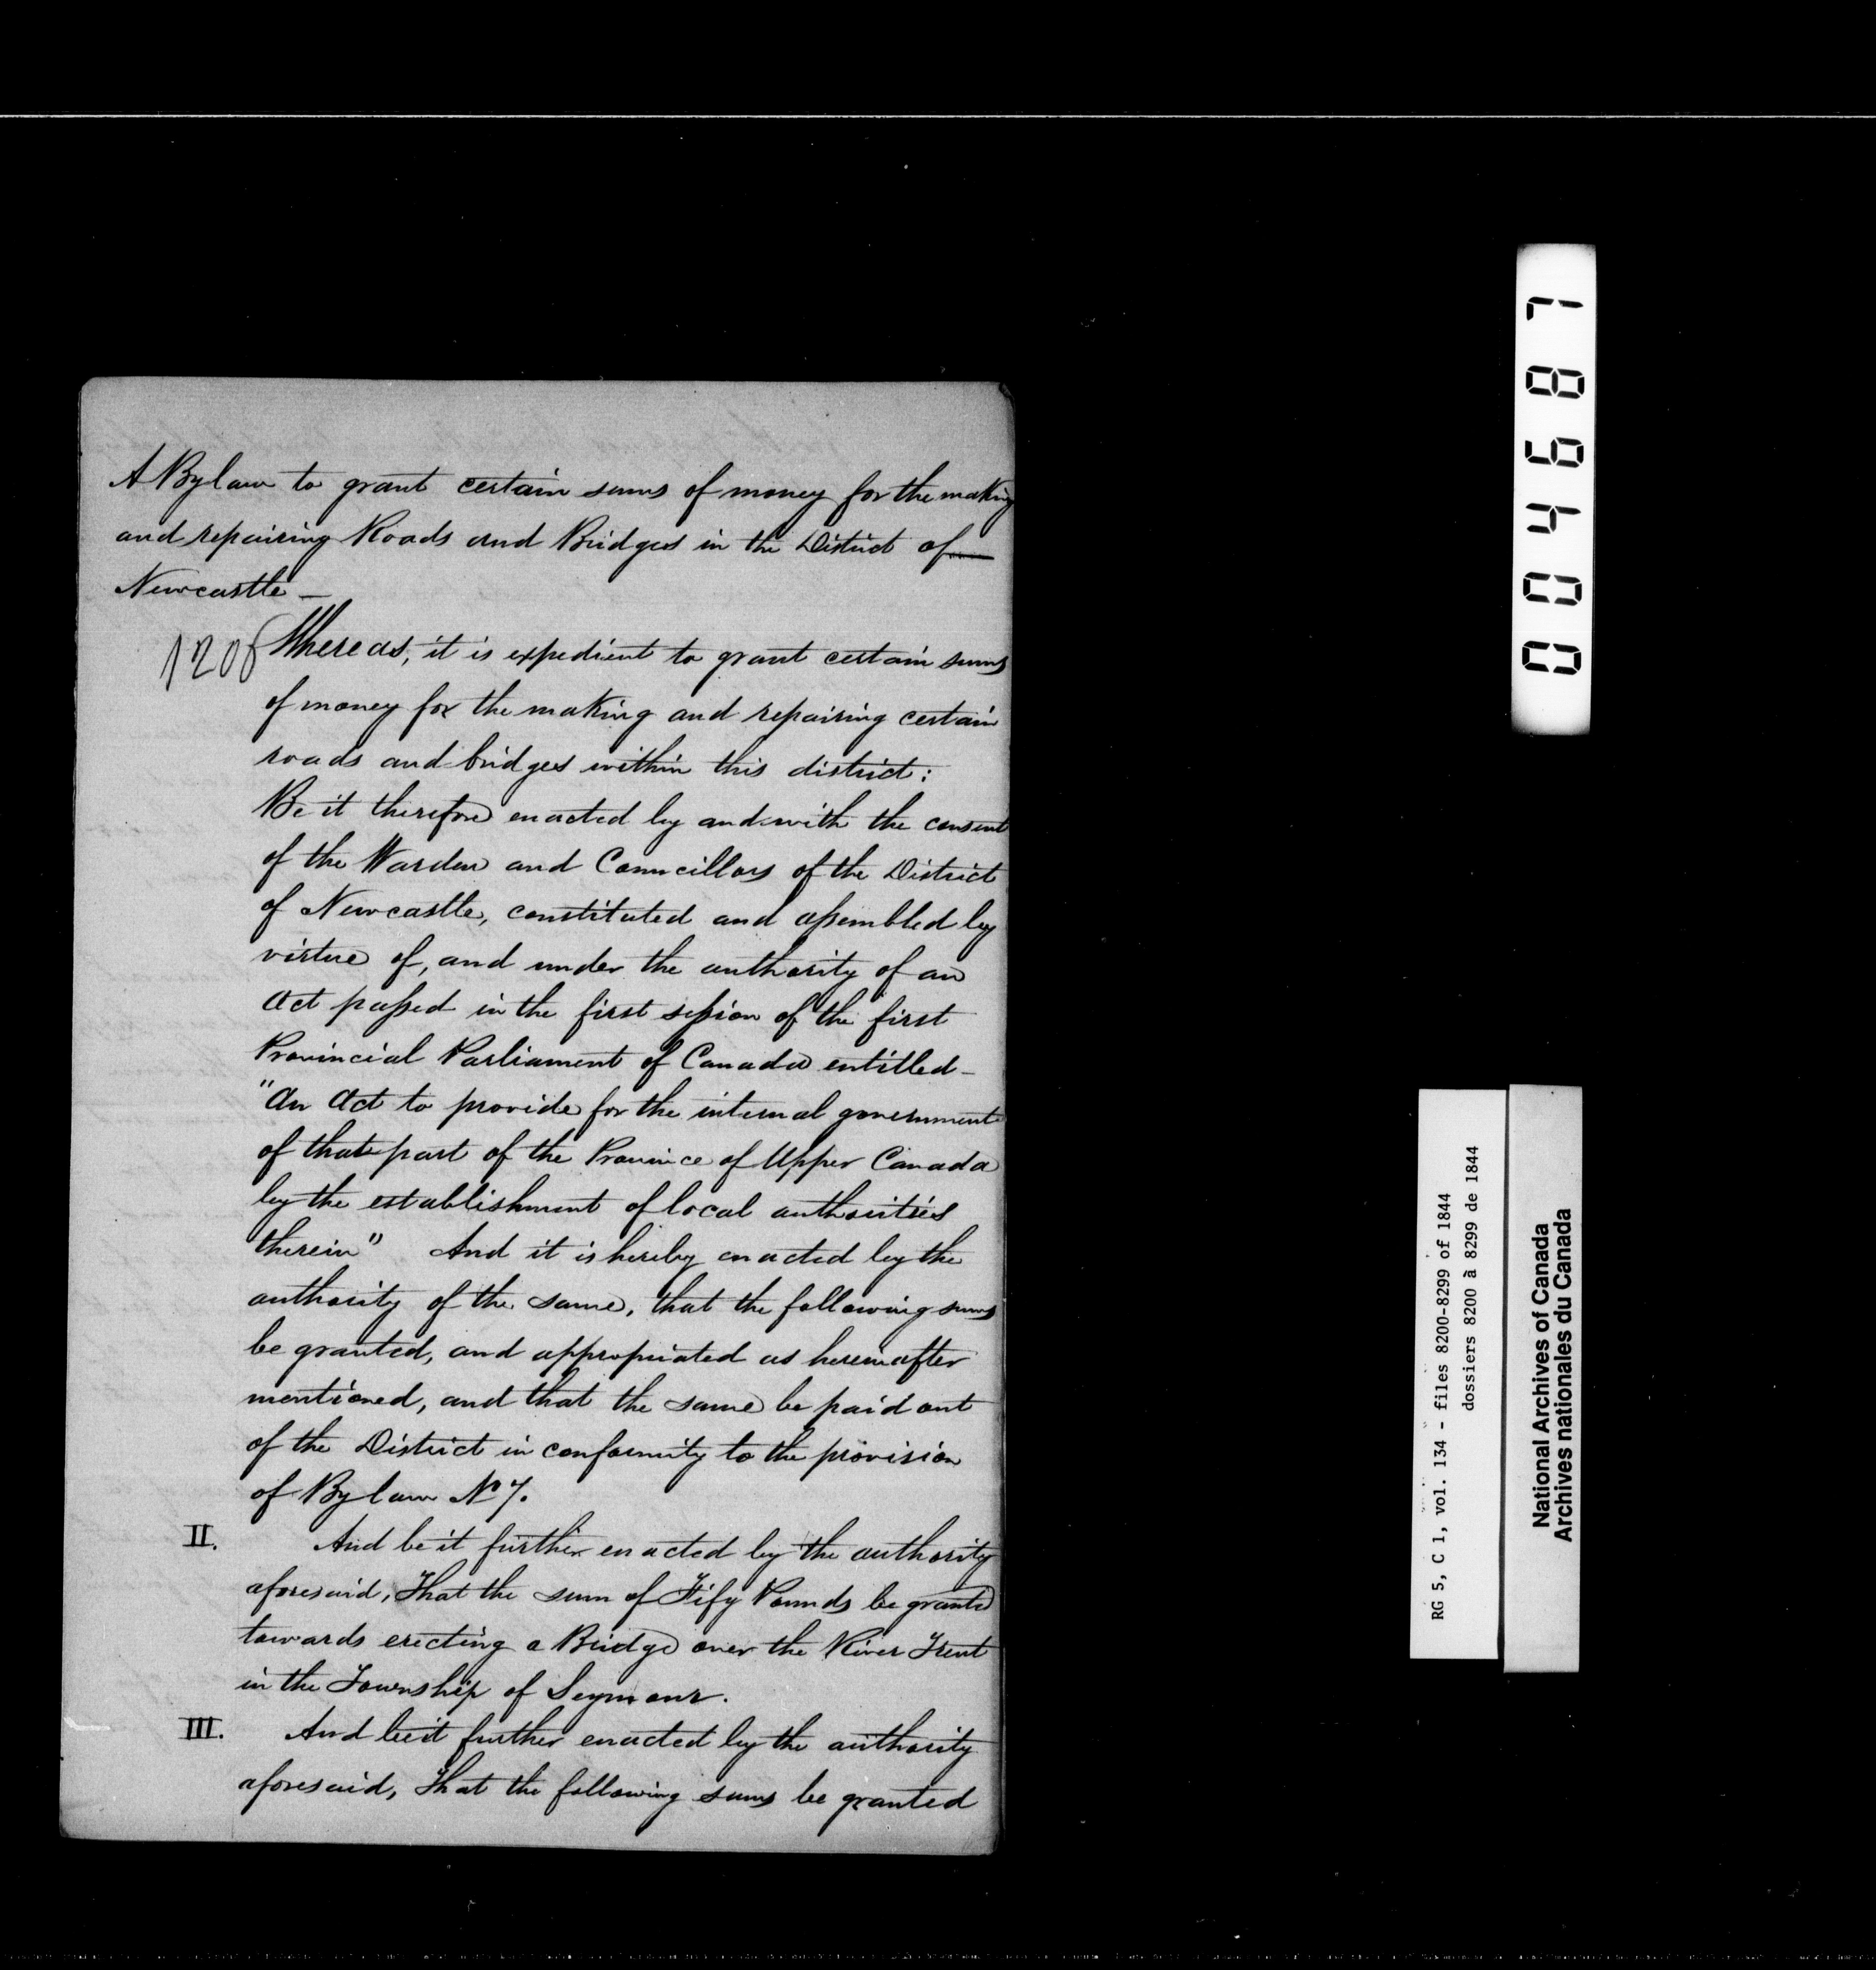 A Bylaw to grant certain sums of money for the making
and repairing Roads and Bridges in the District of
Newcastle —
1208
Whereas, it is expedient to grant certain sums
of money for the making and repairing certain
roads and bridges within this district:
Be it therefore enacted by and with the consent
of the Warden and Councillors of the District
of Newcastle, constituted and assembled by
virtue of, and under the authority of an
Act passed in the first session of the first
Provincial Parliament of Canada entitled -
"An Act to provide for the internal government
of that part of the Province of Upper Canada
by the establishment of local authorities
therein" And it is hereby enacted by the
authority of the same, that the following sums
be granted, and appropriated as hereinafter
mentioned, and that the same be paid out
of the District in conformity to the provision
of Bylaw No 7.
II. And be it further enacted by the authority
aforesaid, That the sum of Fify Pounds be granted
towards erecting a Bridge over the River Trent
in the Township of Seymour.
III. And be it further enacted by the authority
aforesaid, That the following sums be granted
004687
RG 5, C 1, vol. 134 - files 8200-8299 of 1844
dossiers 8200 à 8299 de 1844
National Archives of Canada
Archives nationales du Canada